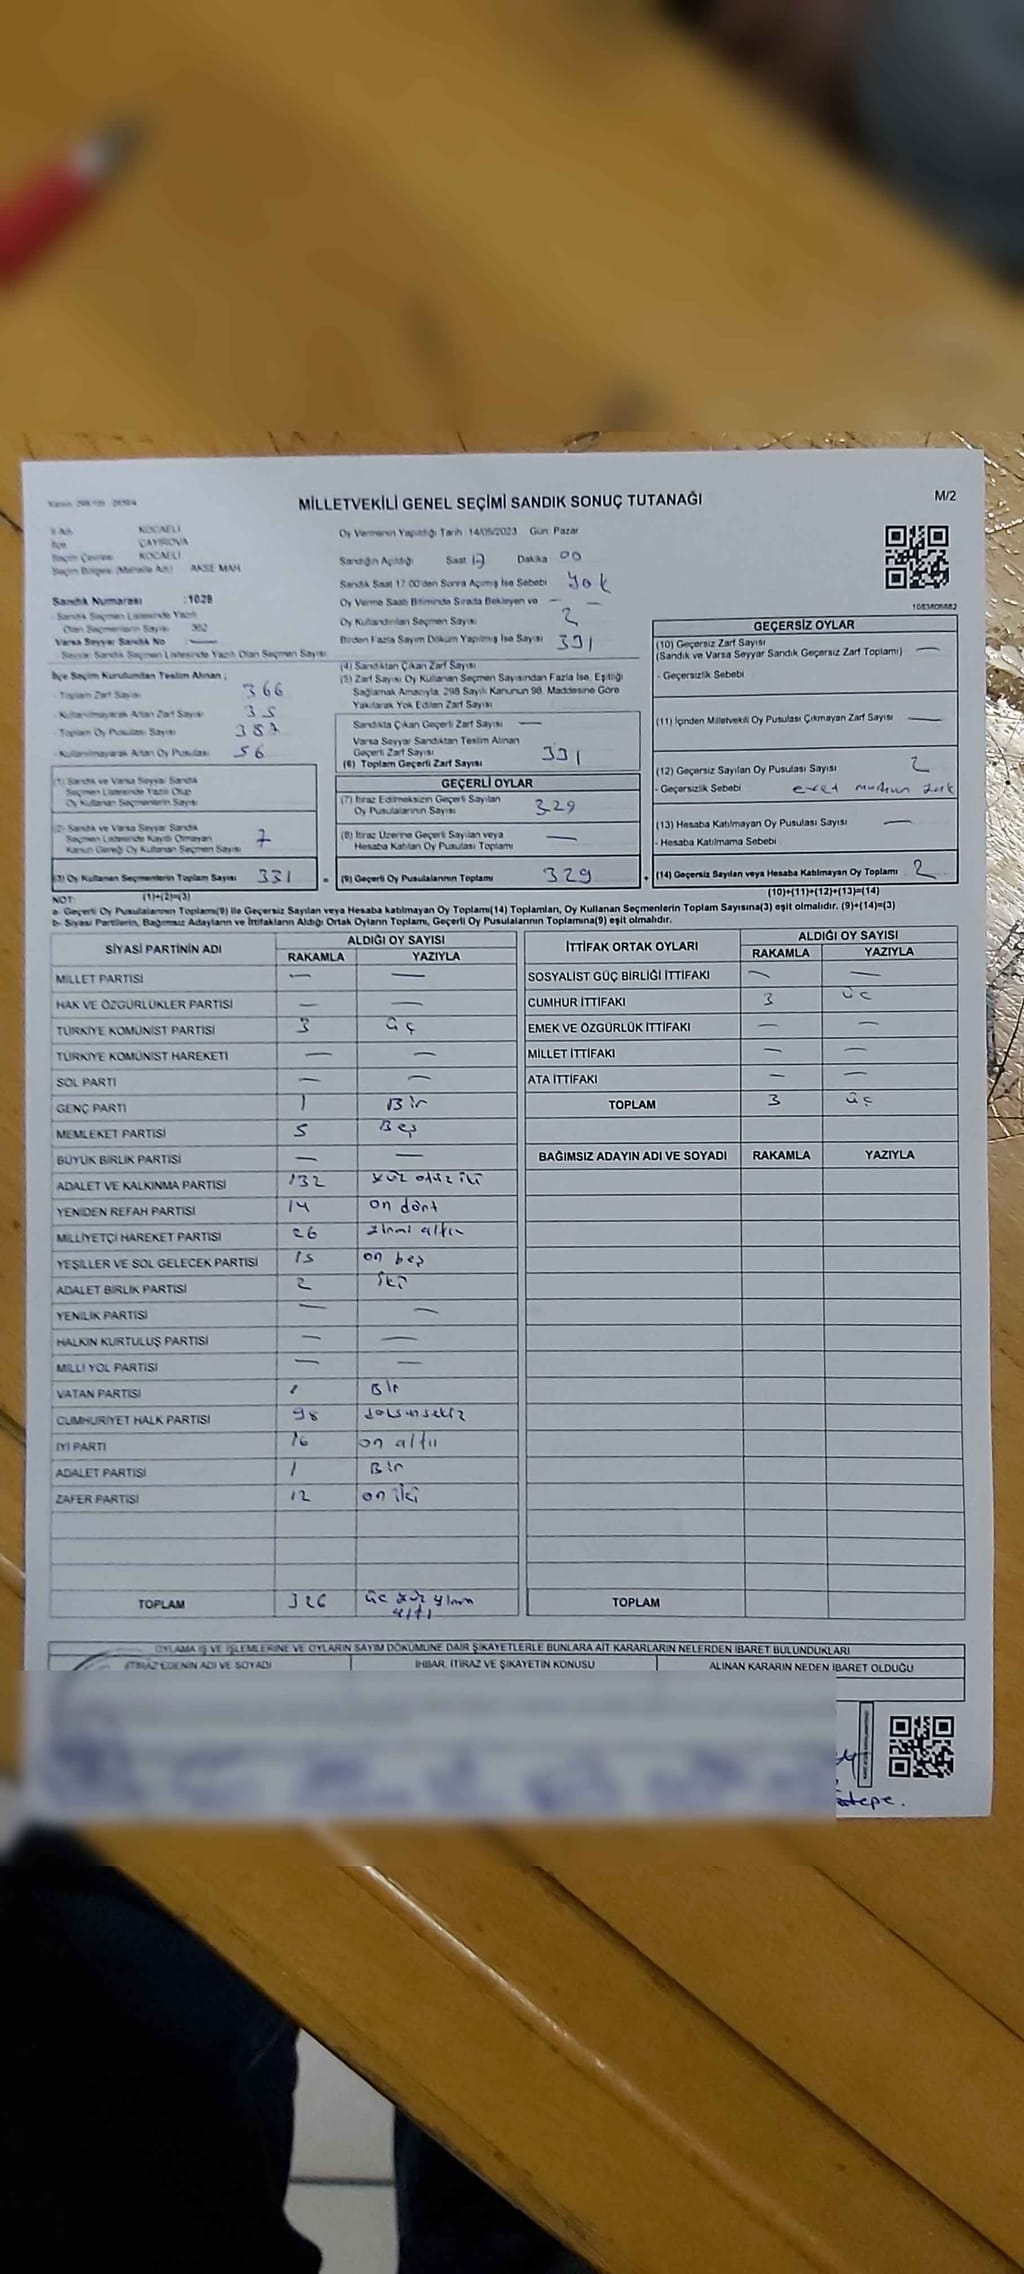 MİLLETVEKİLİ GENEL SEÇİMİ SANDIK SONUÇ TUTANAĞI
M/2
İli Adı KOCAELİ
İlçe ÇAYIROVA
Seçim Çevresi KOCAELİ
Seçim Bölgesi (Mahalle Adı) AKSE MAH
Sandık Numarası :1028
- Sandık Seçmen Listesinde Yazılı
Olan Seçmenlerin Sayısı 382
Varsa Seyyar Sandık No
- Seyyar Sandık Seçmen Listesinde Yazılı Olan Seçmen Sayısı
Oy Vermenin Yapıldığı Tarih :14/05/2023 Gün: Pazar
Sandığın Açıldığı Saat 17 Dakika 00
Sandık Saat 17:00'den Sonra Açılmış İse Sebebi Yok
Oy Verme Saati Bitiminde Sırada Bekleyen ve —
Oy Kullandırılan Seçmen Sayısı 2
Birden Fazla Sayım Döküm Yapılmış İse Sayısı
331
(4) Sandıktan Çıkan Zarf Sayısı
(5) Zarf Sayısı Oy Kullanan Seçmen Sayısından Fazla İse, Eşitliği
Sağlamak Amacıyla, 298 Sayılı Kanunun 98. Maddesine Göre
Yakılarak Yok Edilen Zarf Sayısı
İlçe Seçim Kurulundan Teslim Alınan ;
- Toplam Zarf Sayısı 366
- Kullanılmayarak Artan Zarf Sayısı 35
- Toplam Oy Pusulası Sayısı 387
- Kullanılmayarak Artan Oy Pusulası 56
(1) Sandık ve Varsa Seyyar Sandık
Seçmen Listesinde Yazılı Olup
Oy Kullanan Seçmenlerin Sayısı
(2) Sandık ve Varsa Seyyar Sandık
Seçmen Listesinde Kayıtlı Olmayan
Kanun Gereği Oy Kullanan Seçmen Sayısı 7
(3) Oy Kullanan Seçmenlerin Toplam Sayısı 331 =
Sandıkta Çıkan Geçerli Zarf Sayısı —
Varsa Seyyar Sandıktan Teslim Alınan
Geçerli Zarf Sayısı
(6) Toplam Geçerli Zarf Sayısı 331
GEÇERLİ OYLAR
(7) İtiraz Edilmeksizin Geçerli Sayılan
Oy Pusulalarının Sayısı 329
(8) İtiraz Üzerine Geçerli Sayılan veya
Hesaba Katılan Oy Pusulası Toplamı —
(9) Geçerli Oy Pusulalarının Toplamı 329 +
1083808882
GEÇERSİZ OYLAR
(10) Geçersiz Zarf Sayısı
(Sandık ve Varsa Seyyar Sandık Geçersiz Zarf Toplamı) —
- Geçersizlik Sebebi
(11) İçinden Milletvekili Oy Pusulası Çıkmayan Zarf Sayısı —
(12) Geçersiz Sayılan Oy Pusulası Sayısı 2
- Geçersizlik Sebebi evet yok
(13) Hesaba Katılmayan Oy Pusulası Sayısı —
- Hesaba Katılmama Sebebi
(14) Geçersiz Sayılan veya Hesaba Katılmayan Oy Toplamı 2
NOT: (1)+(2)=(3) (10)+(11)+(12)+(13)=(14)
a- Geçerli Oy Pusulaları Toplamı(9) ile Geçersiz Sayılan veya Hesaba katılmayan Oy Toplamı(14) Toplamları, Oy Kullanan Seçmenlerin Toplam Sayısına(3) eşit olmalıdır. (9)+(14)=(3)
b- Siyasi Partilerin, Bağımsız Adayların ve İttifakların Aldığı Ortak Oyların Toplamı, Geçerli Oy Pusulalarının Toplamına(9) eşit olmalıdır.
SİYASİ PARTİNİN ADI ALDIĞI OY SAYISI
RAKAMLA YAZIYLA
MİLLET PARTİSİ — —
HAK VE ÖZGÜRLÜKLER PARTİSİ — —
TÜRKİYE KOMÜNİST PARTİSİ 3 üç
TÜRKİYE KOMÜNİST HAREKETİ — —
SOL PARTİ — —
GENÇ PARTİ 1 Bir
MEMLEKET PARTİSİ 5 Beş
BÜYÜK BİRLİK PARTİSİ — —
ADALET VE KALKINMA PARTİSİ 132 yüz otuz iki
YENİDEN REFAH PARTİSİ 14 on dört
MİLLİYETÇİ HAREKET PARTİSİ 26 yirmi altı
YEŞİLLER VE SOL GELECEK PARTİSİ 15 on beş
ADALET BİRLİK PARTİSİ 2 iki
YENİLİK PARTİSİ — —
HALKIN KURTULUŞ PARTİSİ — —
MİLLİ YOL PARTİSİ — —
VATAN PARTİSİ 1 Bir
CUMHURİYET HALK PARTİSİ 98 doksan sekiz
İYİ PARTİ 16 on altı
ADALET PARTİSİ 1 Bir
ZAFER PARTİSİ 12 on iki
TOPLAM 326 üç yüz yirmi altı
İTTİFAK ORTAK OYLARI ALDIĞI OY SAYISI
RAKAMLA YAZIYLA
SOSYALİST GÜÇ BİRLİĞİ İTTİFAKI — —
CUMHUR İTTİFAKI 3 üç
EMEK VE ÖZGÜRLÜK İTTİFAKI — —
MİLLET İTTİFAKI — —
ATA İTTİFAKI — —
TOPLAM 3 üç
BAĞIMSIZ ADAYIN ADI VE SOYADI RAKAMLA YAZIYLA
TOPLAM
OYLAMA İŞ VE İŞLEMLERİNE VE OYLARIN SAYIM DÖKÜMÜNE DAİR ŞİKAYETLERLE BUNLARA AİT KARARLARIN NELERDEN İBARET BULUNDUKLARI
İTİRAZ EDENİN ADI VE SOYADI İHBAR, İTİRAZ VE ŞİKAYETİN KONUSU ALINAN KARARIN NEDEN İBARET OLDUĞU